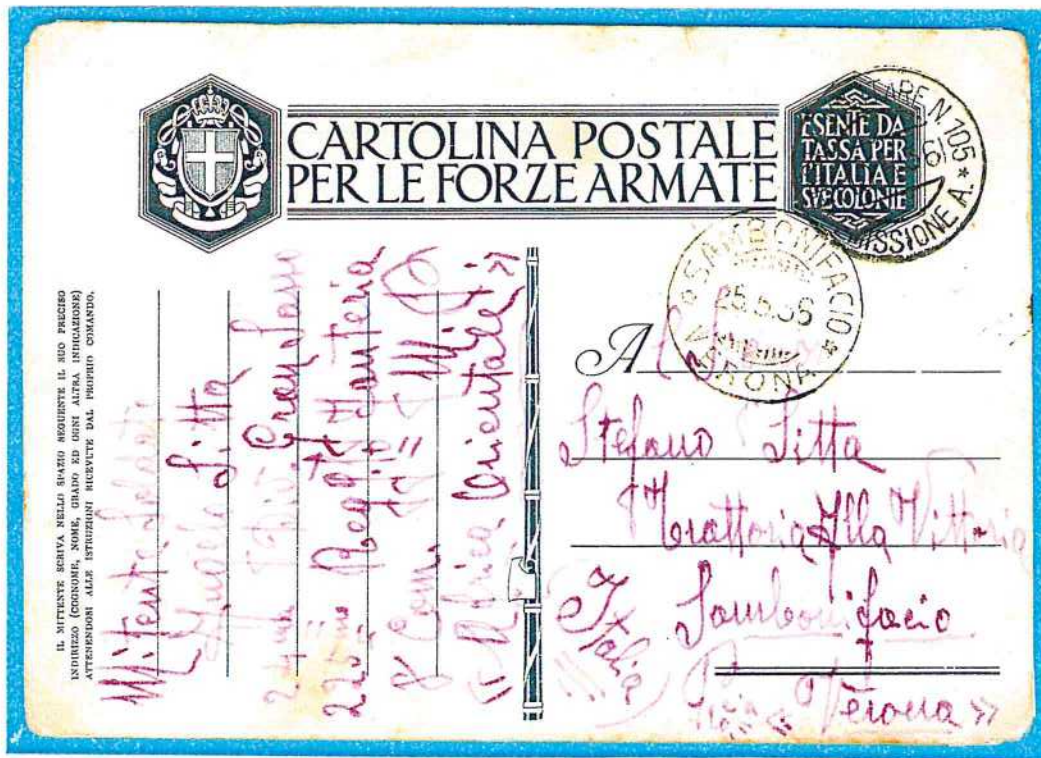 CARTOLINA POSTALE
PER LE FORZE ARMATE
ESENTE DA
TASSA PER
L'ITALIA E
SVE COLONIE
TARE N. 105 * MISSIONE A.
* SAMBONIFACIO * VERONA
25.5.36
IL MITTENTE SCRIVA NELLO SPAZIO SEGUENTE IL SUO PRECISO
INDIRIZZO (COGNOME, NOME, GRADO ED OGNI ALTRA INDICAZIONE)
ATTENENDOSI ALLE ISTRUZIONI RICEVUTE DAL PROPRIO COMANDO.
Mittente Soldato
Sitta
Gran Sasso
Regg Fanteria
8ª Com
«Africa Orientale»
A
Stefano Sitta
Trattoria Alla Vittoria
Sambonifacio
Italia
«Verona»